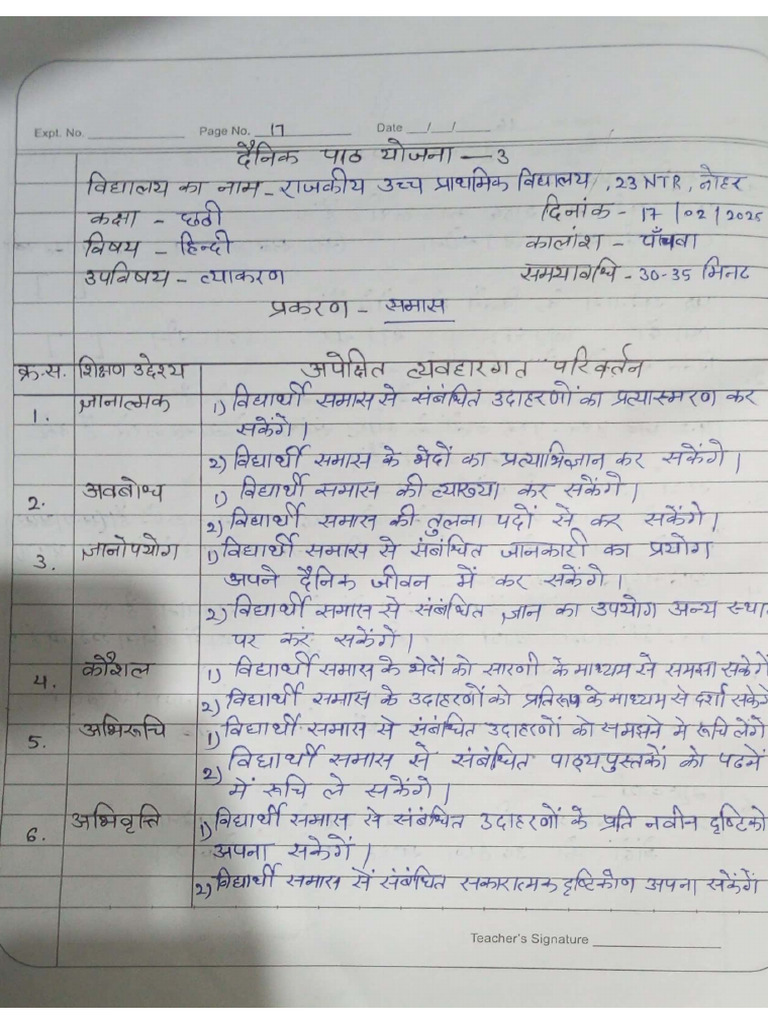 Expt. No. Page No. 17 Date
दैनिक पाठ योजना - 3
विद्यालय का नाम - राजकीय उच्च प्राथमिक विद्यालय, 23 NTR, नोहर
कक्षा - छठी दिनांक - 17/02/2025
विषय - हिन्दी कालांश - पाँचवा
उपविषय - व्याकरण समयावधि - 30-35 मिनट
प्रकरण - समास
क्र.स. शिक्षण उद्देश्य अपेक्षित व्यवहारगत परिवर्तन
1. ज्ञानात्मक 1) विद्यार्थी समास से संबंधित उदाहरणों का प्रत्यास्मरण कर
सकेंगे।
2) विद्यार्थी समास के भेदों का प्रत्याभिज्ञान कर सकेंगे।
2. अवबोध 1) विद्यार्थी समास की व्याख्या कर सकेंगे।
2) विद्यार्थी समास की तुलना पदों से कर सकेंगे।
3. ज्ञानोपयोग 1) विद्यार्थी समास से संबंधित जानकारी का प्रयोग
अपने दैनिक जीवन में कर सकेंगे।
2) विद्यार्थी समास से संबंधित ज्ञान का उपयोग अन्य
पर कर सकेंगे।
4. कौशल 1) विद्यार्थी समास के भेदों को सारणी के माध्यम से समझा सकेगें
2) विद्यार्थी समास के उदाहरणों को प्रतिरूप के माध्यम से दर्शा सकेगें
5. अभिरूचि 1) विद्यार्थी समास से संबंधित उदाहरणों को समझने मे रूचि लेंगे
2) विद्यार्थी समास से संबंधित पाठ्यपुस्तकों को पढनें
में रूचि ले सकेंगे।
6. अभिवृत्ति 1) विद्यार्थी समास से संबंधित उदाहरणों के प्रति नवीन दृष्टिको
अपना सकेगें।
2) विद्यार्थी समास सें संबंधित सकारात्मक दृष्टिकोण अपना सकेंगें
Teacher's Signature